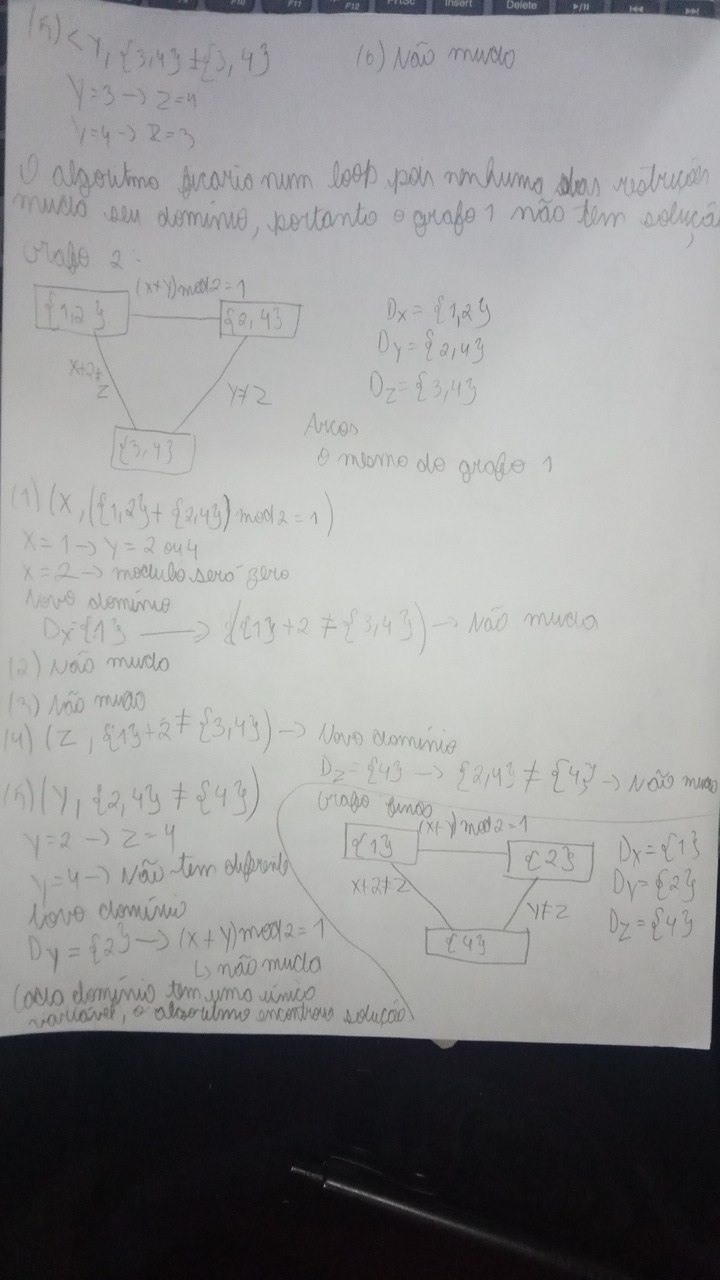 F10
F11
F12
PrtSc
Insert
Delete
(5) < Y, {3,4} ≠ {3,4}
(6) Não muda
Y=3 → Z=4
Y=4 → Z=3
O algoritmo ficaria num loop pois nenhuma das restrições
muda seu domínio, portanto o grafo 1 não tem solução
Grafo 2:
(x+y)mod2=1
{1,2}
{2,4}
x+2≠
Z
Y≠Z
{3,4}
Dx = {1,2}
Dy = {2,4}
Dz = {3,4}
Arcos
O mesmo do grafo 1
(1) (X, ({1,2} + {2,4}) mod 2 = 1)
X=1 → Y = 2 ou 4
X=2 → modulo será zero
Novo domínio
Dx={1} → ({1}+2 ≠ {3,4}) → Não muda
(2) Não muda
(3) Não muda
(4) (Z, {1}+2 ≠ {3,4}) → Novo domínio
Dz = {4} → {2,4} ≠ {4} → Não muda
(5) (Y, {2,4} ≠ {4})
Y=2 → Z=4
Y=4 → Não tem diferente
Novo domínio
Dy = {2} → (x+y)mod2=1
↳ não muda
Cada domínio tem uma único
variável, o algoritmo encontrou solução
Grafo final
(x+y)mod2=1
{1}
{2}
x+2≠Z
Y≠Z
{4}
Dx={1}
Dy={2}
Dz={4}